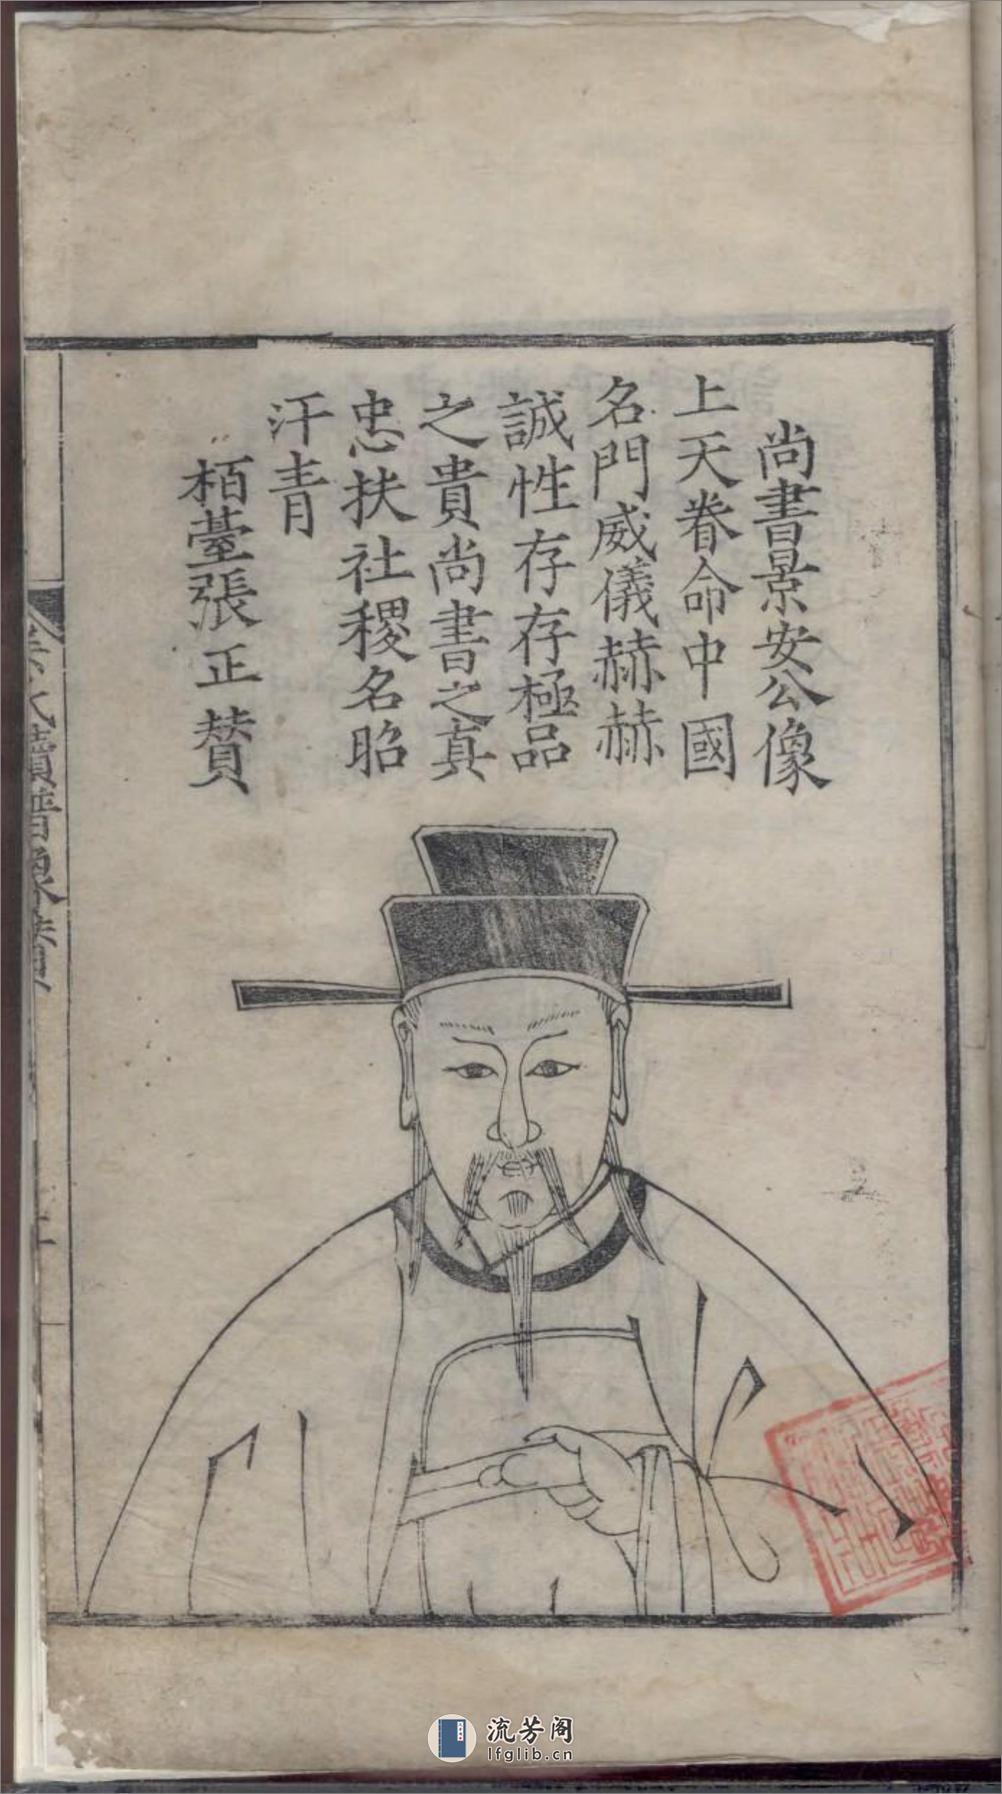 尚書景安公像
上天眷命中國
名門威儀赫赫
誠性存存極品
之貴尚書之真
忠扶社稷名昭
汗青
栢薹張正賛
氏續譜像賛
流芳阁
lfglib.cn